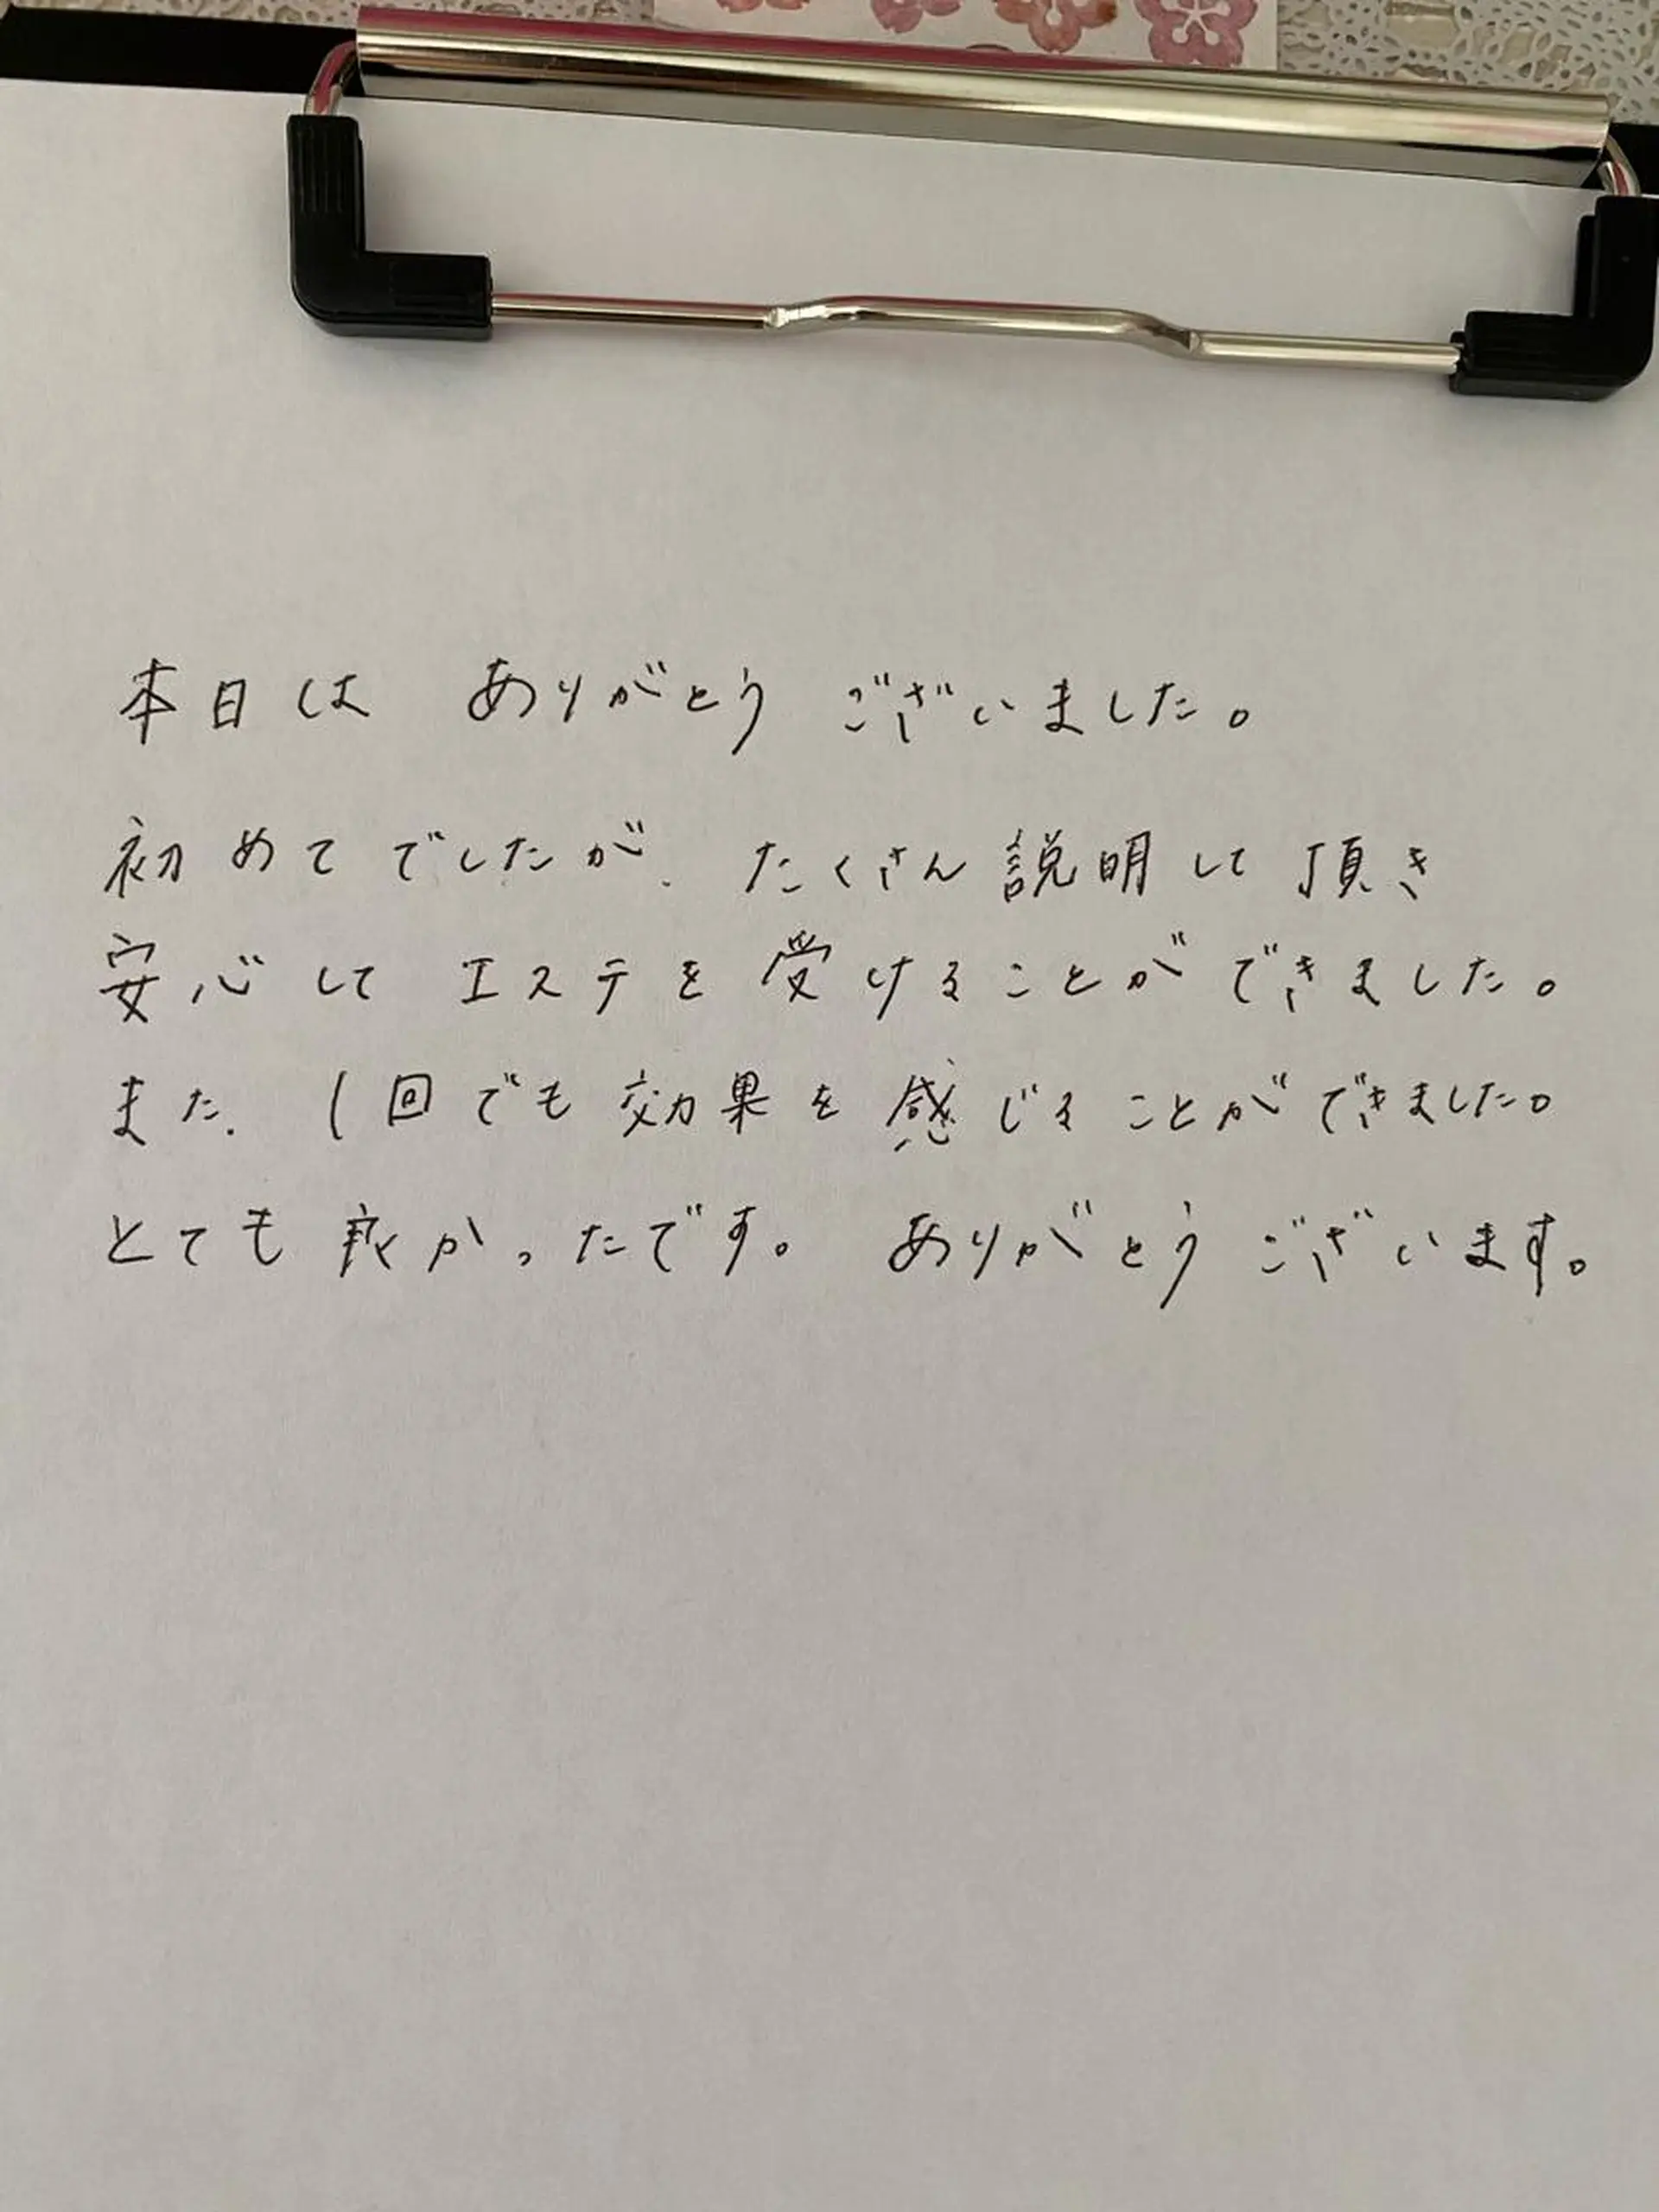 本日は ありがとう ございました。
初めてでしたが、たくさん説明して頂き
安心して エステを受けることができました。
また、1回でも効果を感じることができました。
とても良かったです。 ありがとうございます。